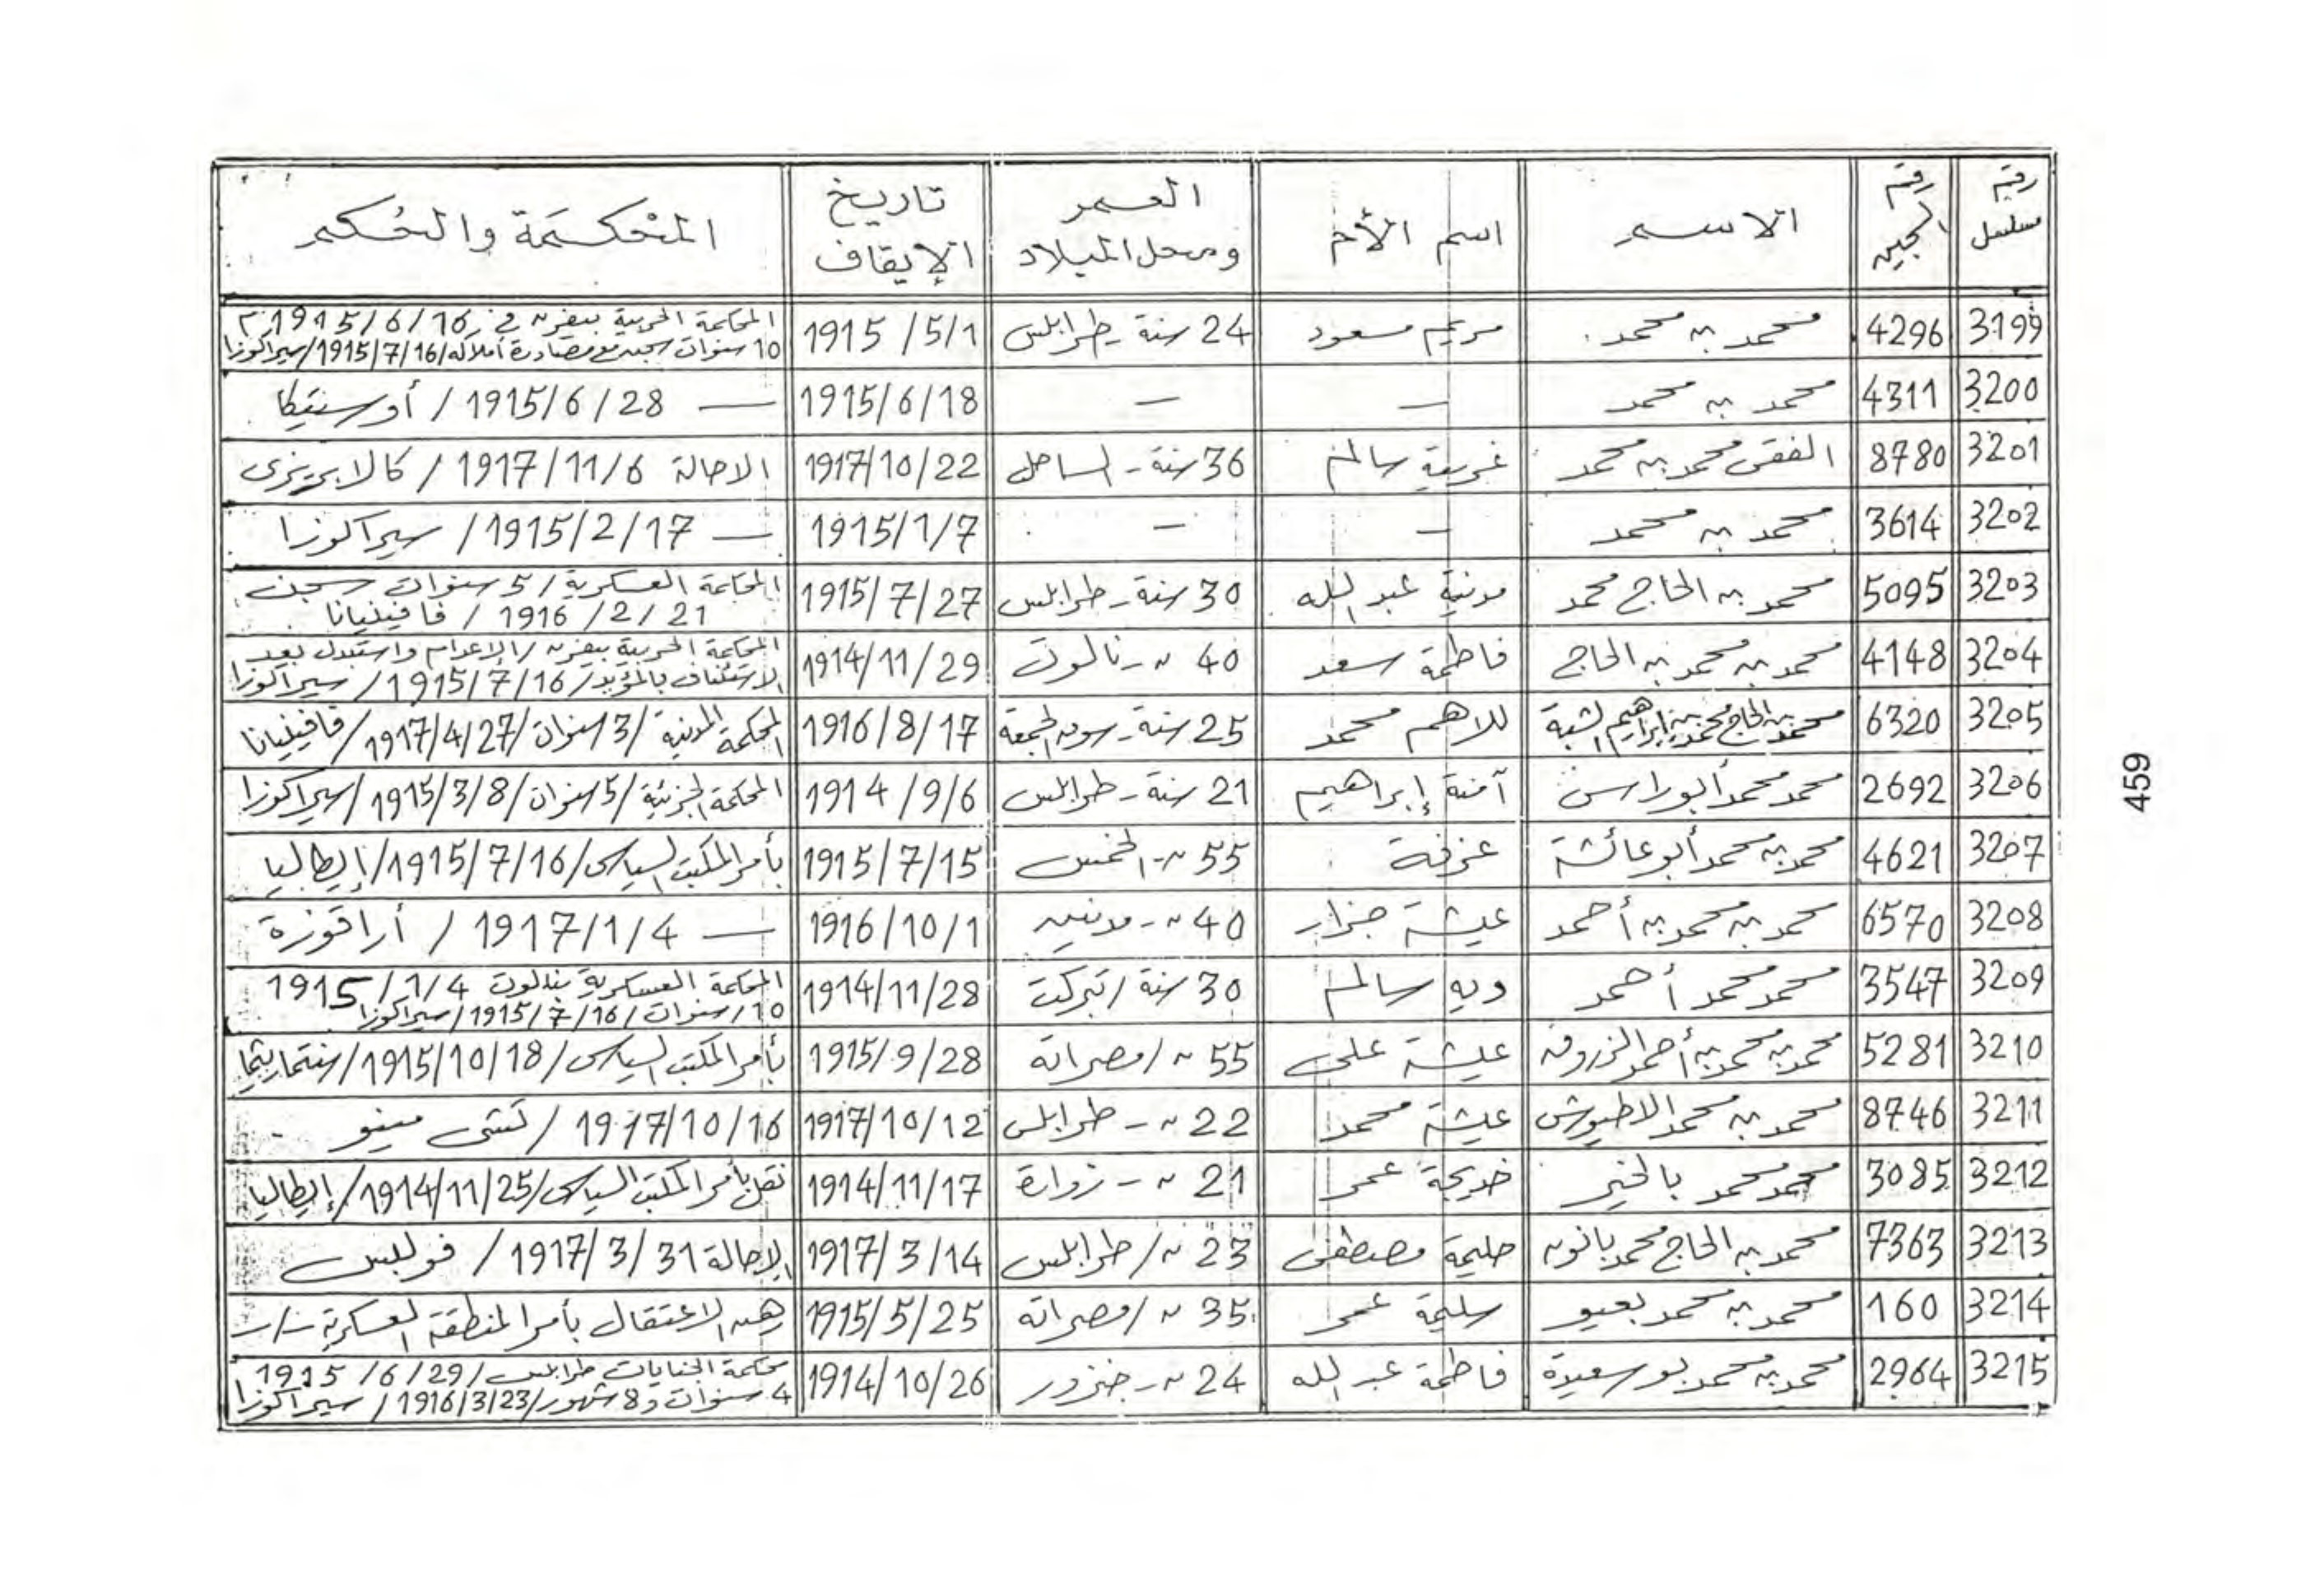 رقم مسلسل | رقم الجبين | الاسم | اسم الأم | العمر ومحل الميلاد | تاريخ الإيقاف | المحكمة والحكم
3199 | 4296 | محمد بن محمد | مريم مسعود | 24 سنة - طرابلس | 1915/5/1 | المحكمة الحربية بيفرن في 1915/6/16 م 10 سنوات سجن مع مصادرة أملاكه/1915/7/16/سيراكوزا
3200 | 4311 | محمد بن محمد | — | — | 1915/6/18 | — 1915/6/28 / أوستيكا
3201 | 8780 | الفقي محمد بن محمد | غربية سالم | 36 سنة - الساحل | 1917/10/22 | الاحالة 1917/11/6 / كالابريزى
3202 | 3614 | محمد بن محمد | — | — | 1915/1/7 | — 1915/2/17 / سيراكوزا
3203 | 5095 | محمد بن الحاج محمد | مدنية عبد الله | 30 سنة - طرابلس | 1915/7/27 | المحكمة العسكرية / 5 سنوات سجن 1916/2/21 / فافينيانا
3204 | 4148 | محمد بن محمد بن الحاج | فاطمة سعد | 40 ~ - نالوت | 1914/11/29 | المحكمة الحربية بيفرن / الإعدام واستبدل بعد الاستئناف بالمؤبد / 1915/7/16 / سيراكوزا
3205 | 6320 | محمد بن الحاج محمد بن إبراهيم الشبة | للاهم محمد | 25 سنة - سوق الجمعة | 1916/8/17 | المحكمة المدنية / 3 سنوات / 1917/4/27 / فافينيانا
3206 | 2692 | محمد محمد أبوراس | آمنة إبراهيم | 21 سنة - طرابلس | 1914/9/6 | المحكمة الجزئية / 5 سنوات / 1915/3/8 / سيراكوزا
3207 | 4621 | محمد بن محمد أبو عائشة | عزفة | 55 ~ - الخمس | 1915/7/15 | بأمر المكتب السياسى / 1915/7/16 / إيطاليا
3208 | 6570 | محمد بن محمد بن أحمد | عيشة جزار | 40 ~ - مدنين | 1916/10/1 | — 1917/1/4 / أراقوزة
3209 | 3547 | محمد محمد أحمد | ويه سالم | 30 سنة / تبركت | 1914/11/28 | المحكمة العسكرية بنالوت 1915/1/4 10/سنوات / 1915/7/16 / سيراكوزا
3210 | 5281 | محمد بن محمد بن أحمد الزروق | عيشة على | 55 ~ / مصراتة | 1915/9/28 | بأمر المكتب السياسى / 1915/10/18 /
3211 | 8746 | محمد بن محمد الاطيورش | عيشة محمد | 22 ~ - طرابلس | 1917/10/12 | 1917/10/16 / تستى مينو
3212 | 3085 | محمد محمد بالخير | خديجة عمر | 21 ~ - زوارة | 1914/11/17 | نقل بأمر المكتب السياسى / 1914/11/25 / إيطاليا
3213 | 7363 | محمد بن الحاج محمد بانون | حليمة مصطفى | 23 ~ / طرابلس | 1917/3/14 | الإحالة 1917/3/31 / فولبس
3214 | 160 | محمد بن محمد بعيو | سليمة عمر | 35 ~ / مصراتة | 1915/5/25 | رهن الاعتقال بأمر المنطقة العسكرية -/-
3215 | 2964 | محمد بن محمد بوسعيدة | فاطمة عبد الله | 24 ~ - جنزور | 1914/10/26 | محكمة الجنايات طرابلس / 1915/6/29 4 سنوات و 8 شهور / 1916/3/23 / سيراكوزا
459